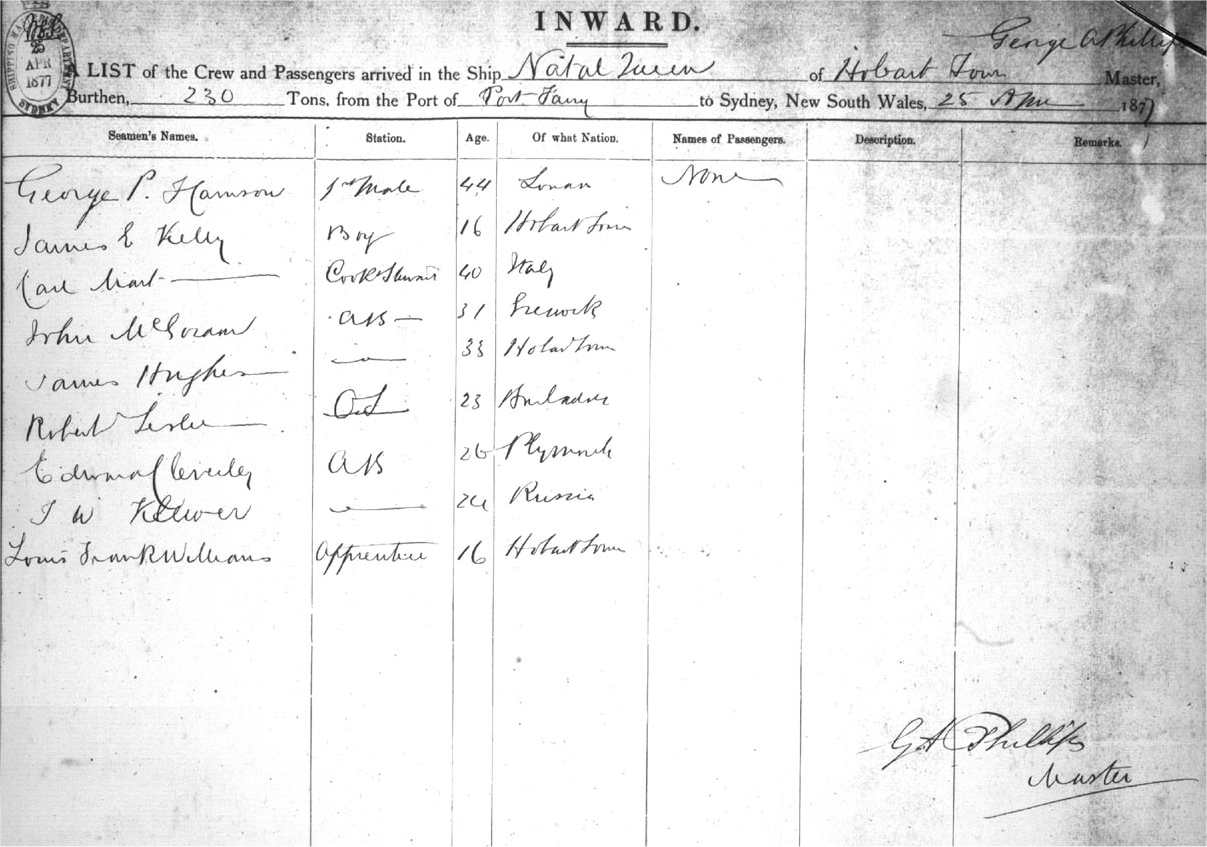 INWARD.
SHIPPING MA
DEPARTMENT
25
APR
1877
SYDNEY
George A Phillips
A LIST of the Crew and Passengers arrived in the Ship Natal Queen of Hobart Town Master,
Burthen, 230 Tons, from the Port of Port Fairy to Sydney, New South Wales, 25 Apr 1877
Seamen's Names. Station. Age. Of what Nation. Names of Passengers. Description. Remarks.
George P. Harrison 1st Mate 44 None
James E Kelly Boy 16 Hobart Town
Carl Cook & 40 Italy
John McGoram AB 31 Greenock
James Hughes 33 Hobart Town
Robert Leslie OS 23
Edward AB 26 Plymouth
J W 24 Russia
Louis Frank Williams Apprentice 16 Hobart Town
G A Phillips
Master